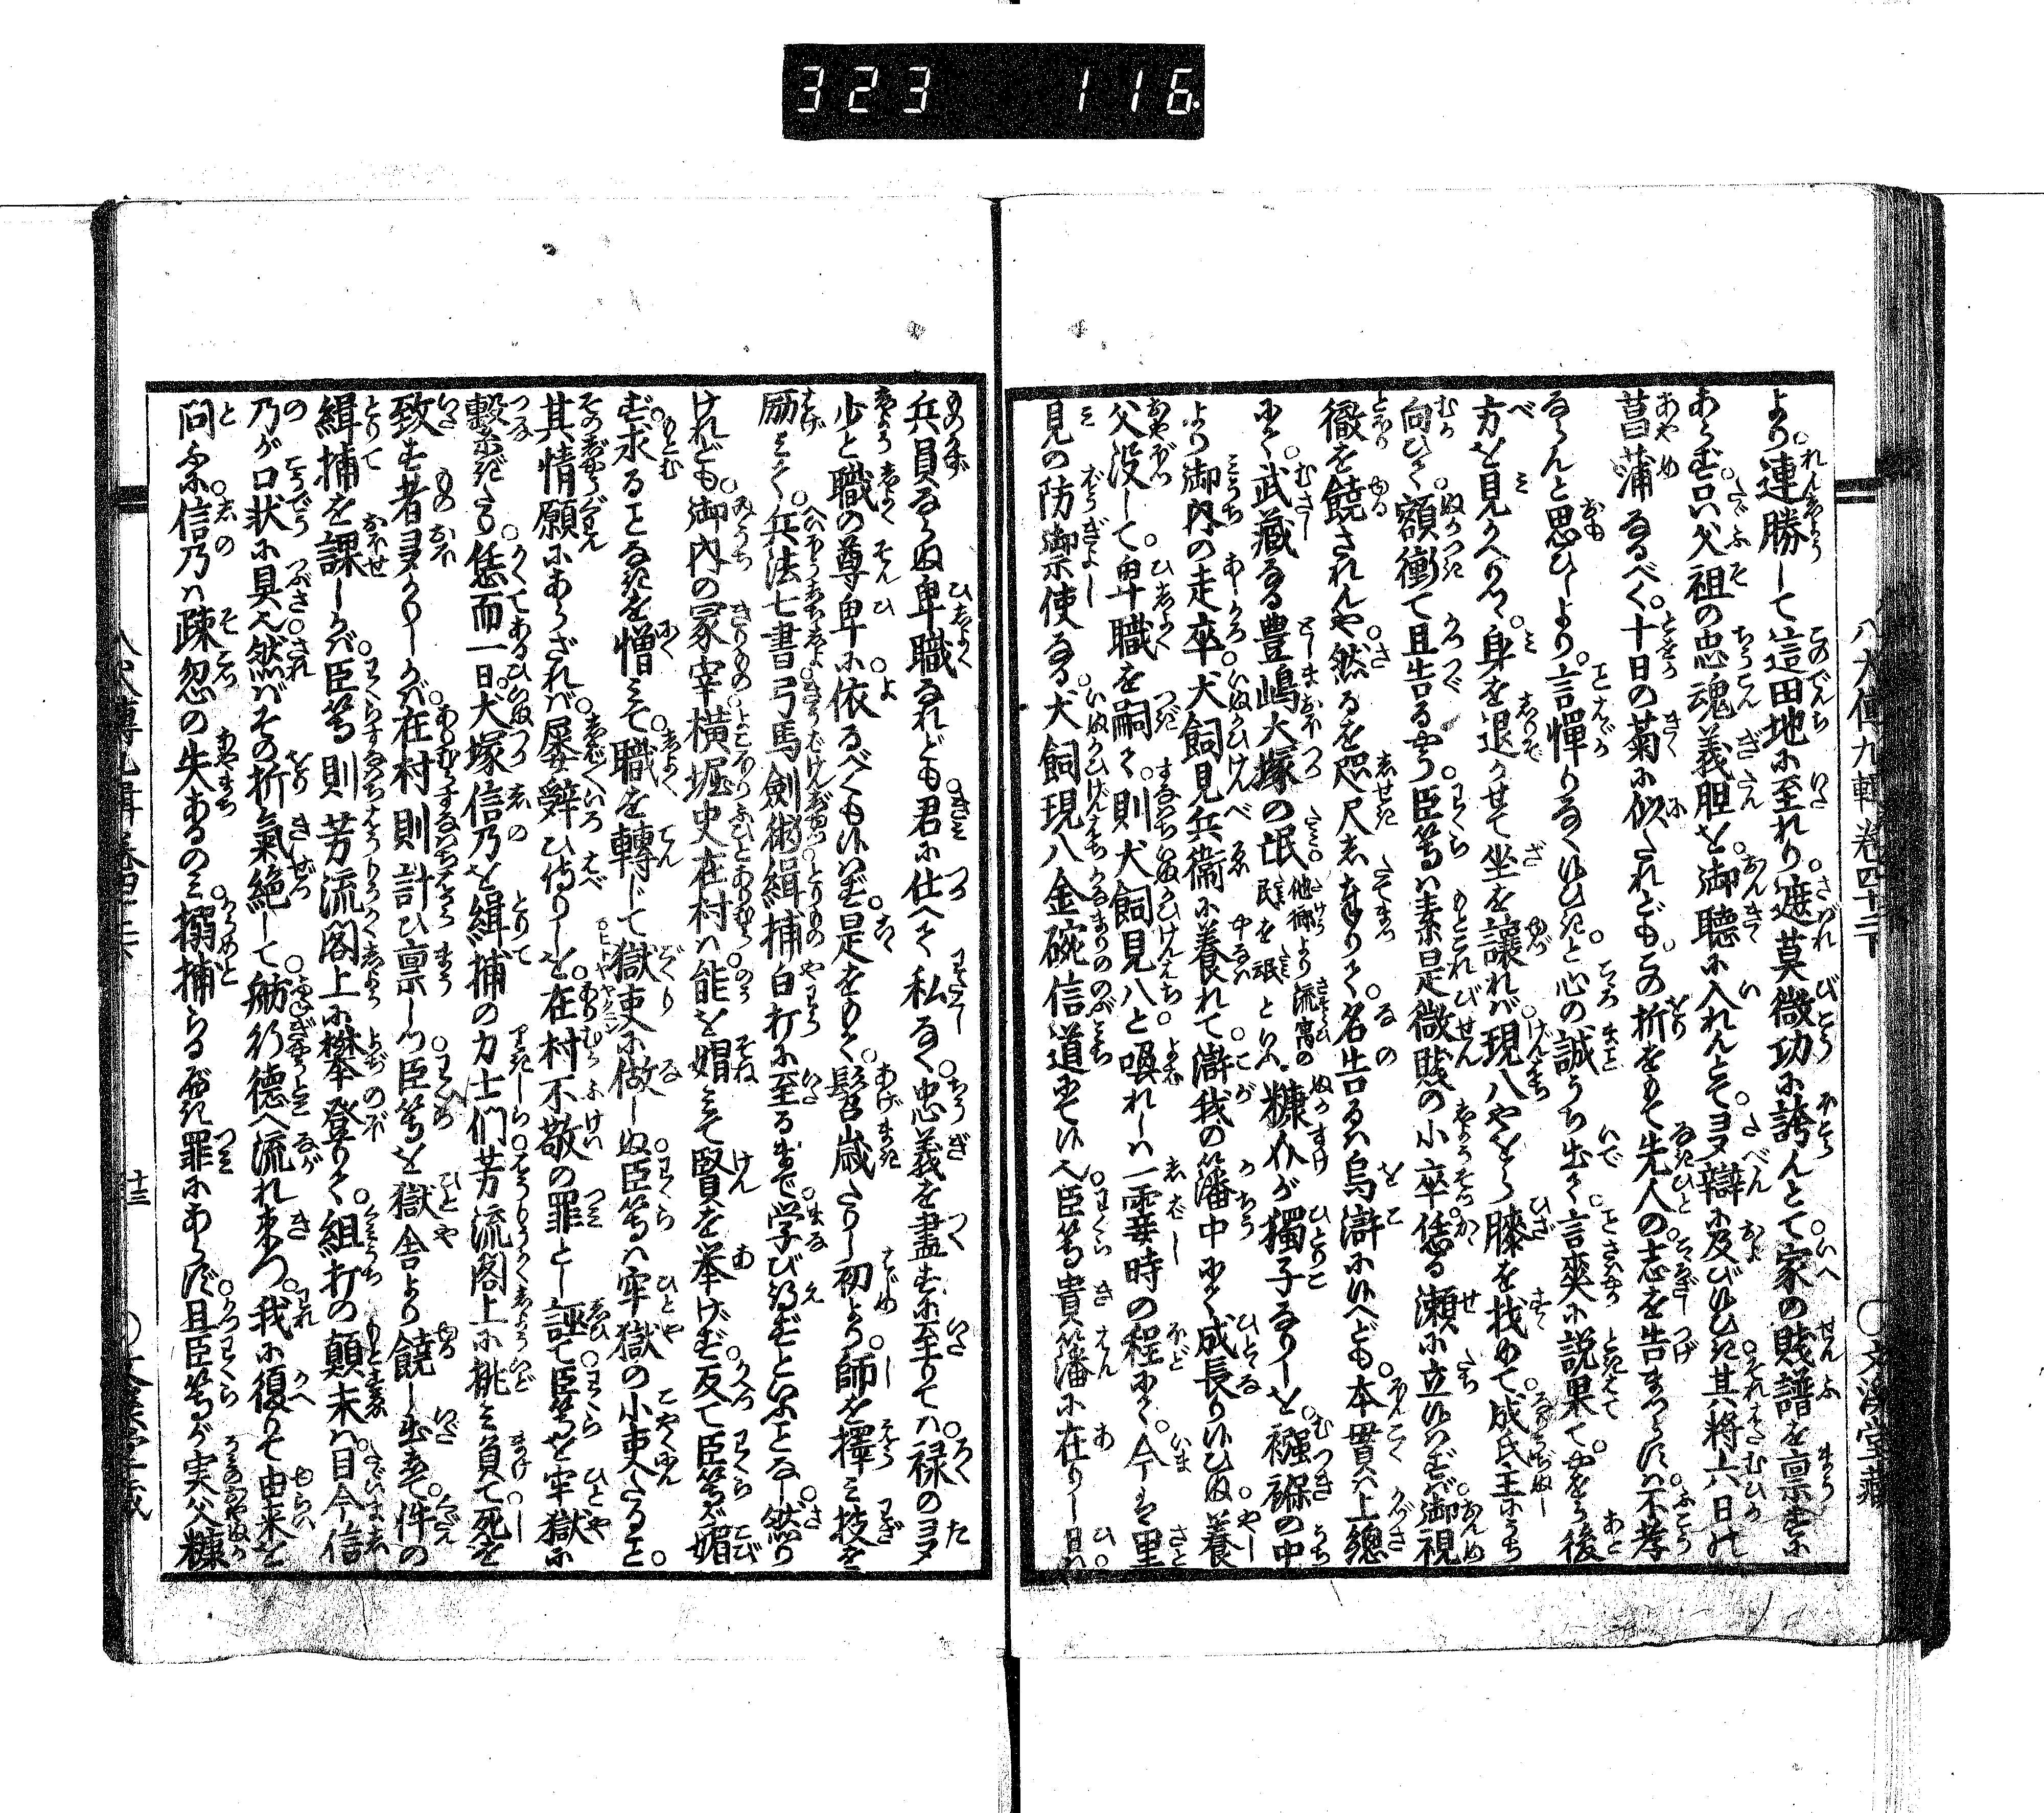 323 116
八犬傳九輯卷四十二下
○文溪堂藏
より。連勝して這田地に至れり。遮莫微功に誇んとて。家の賤譜を稟すに
あらず。只父祖の忠魂義胆を。御聴に入れんとて。多辯に及び候ひき。其ハ將六日の
菖蒲なるべく。十日の菊に似たれども。この折をもて先人の。志を告まつらずハ不孝
ならんと思ひしより。言憚りなく候ひきと。心の誠うち出て。言爽に説果て。やをら後
方を見かへりつゝ。身を退かせて坐を讓れバ。現八やをら膝を找めて。成氏主にうち
向ひて。額衝て且告るやう。臣等ハ素是微賤の小卒。恁る瀬に立候はずバ。御視
徹を饒されんや。然るを咫尺しまつりて。名告るハ烏滸に候へども。本貫ハ上總
にて。武藏なる豊嶋大塚の氓 他郷より流寓の民を氓といふ 糠助が獨子なりしを。襁褓の中
より御内の走卒。犬飼見兵衞に養れて。滸我の藩中にて。成長り候ひぬ。養
父没して卑職を嗣て。則犬飼見八と喚れしハ。一霎時の程にて。今ハ里
見の防禦使なる。犬飼現八金碗信道にて候へ。臣等貴藩に在りし日ハ
兵員ならぬ卑職なれども。君に仕へて私なく。忠義を盡すに至りてハ。禄の多
少と職の尊卑に。依るべくも候はず。是をもて。髫歳たりし初より。師を擇み技を
励みて。兵法七書弓馬劍術。緝捕白打に至るまで。学び得ずといふことなし。然り
けれども。御内の冢宰横堀史在村ハ。能を媢みて賢を挙げず。反て臣等が媚
ず。求ることなきを憎みて。職を轉じて獄吏に做しぬ。臣等ハ牢獄の小吏たること。
其情願にあらざれバ。屡辞ひ侍りしを。在村不敬の罪とし誣て。臣等を牢獄に
繋ぎたる。恁而一日。犬塚信乃を緝捕の力士們。芳流閣上に挑み負て。死を
致す者多かりしかバ。在村則計ひ稟しつ。臣等を獄舎より饒し出して。件の
緝捕を課しらバ。臣等則芳流閣上に攀登りて。組打の顛末ハ。目今信
乃が口状に具へ。然バその折氣絶して。舫ハ行德へ流れ來つ。我に復りて由来を
問ふに。信乃ハ疎忽の失あるのミ。搦捕らるべき罪にあらず。且臣等が実父糠
八犬傳九輯卷四十二下
十三
○文溪堂藏